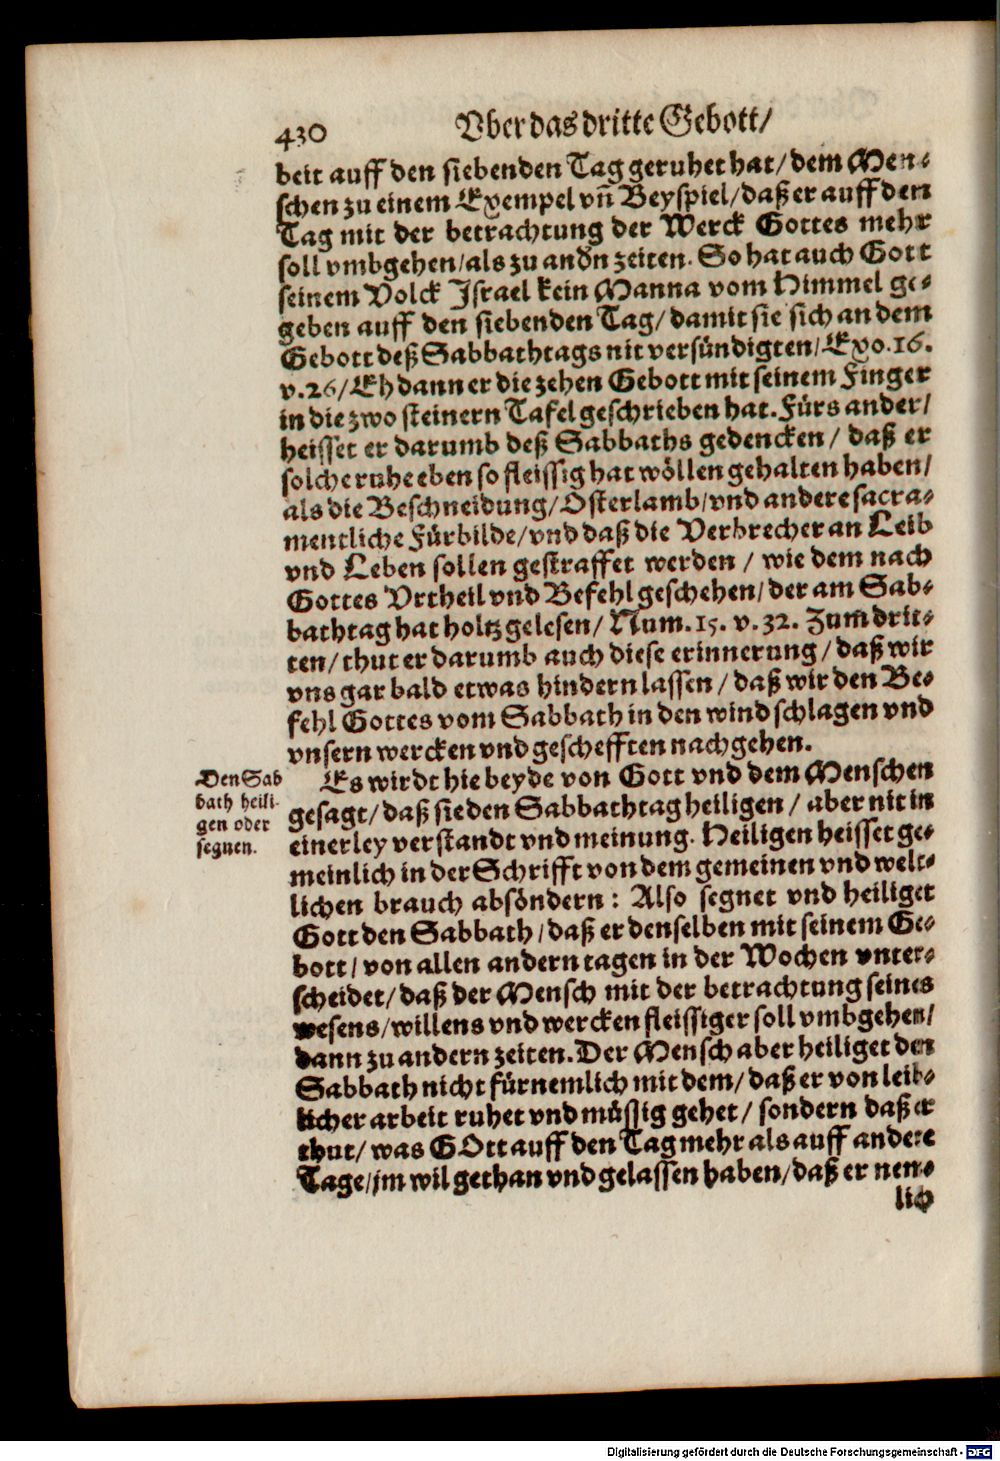 430 Vber das dritte Gebott/
beit auff den siebenden Tag geruhet hat/ dem Men⸗
schen zu einem Exempel vñ Beyspiel/ daß er auff den
Tag mit der betrachtung der Werck Gottes mehr
soll vmbgehen/ als zu andn zeiten. So hat auch Gott
seinem Volck Israel kein Manna vom Himmel ge⸗
geben auff den siebenden Tag/ damit sie sich an dem
Gebott deß Sabbathtags nit versündigten/ Exo. 16.
v. 26/ Eh dann er die zehen Gebott mit seinem Finger
in die zwo steinern Tafel geschrieben hat. Fürs ander/
heisset er darumb deß Sabbaths gedencken/ daß er
solche ruhe eben so fleissig hat wöllen gehalten haben/
als die Beschneidung/ Osterlamb/ vnd andere sacra⸗
mentliche Fürbilde/ vnd daß die Verbrecher an Leib
vnd Leben sollen gestraffet werden/ wie dem nach
Gottes Vrtheil vnd Befehl geschehen/ der am Sab⸗
bathtag hat holtz gelesen/ Num. 15. v. 32. Zum drit⸗
ten/ thut er darumb auch diese erinnerung/ daß wir
vns gar bald etwas hindern lassen/ daß wir den Be⸗
fehl Gottes vom Sabbath in den wind schlagen vnd
vnsern wercken vnd geschefften nachgehen.
Den Sab
bath heili⸗
gen oder
segnen.
Es wirdt hie beyde von Gott vnd dem Menschen
gesagt/ daß sie den Sabbathtag heiligen/ aber nit in
einerley verstandt vnd meinung. Heiligen heisset ge⸗
meinlich in der Schrifft von dem gemeinen vnd welt⸗
lichen brauch absöndern: Also segnet vnd heiliget
Gott den Sabbath/ daß er denselben mit seinem Ge⸗
bott/ von allen andern tagen in der Wochen vnter⸗
scheidet/ daß der Mensch mit der betrachtung seines
wesens/ willens vnd wercken fleissiger soll vmbgehen/
dann zu andern zeiten. Der Mensch aber heiliget den
Sabbath nicht fürnemlich mit dem/ daß er von leib⸗
licher arbeit ruhet vnd müssig gehet/ sondern daß er
thut/ was GOtt auff den Tag mehr als auff andere
Tage/ jm wil gethan vnd gelassen haben/ daß er nem⸗
lich
Digitalisierung gefördert durch die Deutsche Forschungsgemeinschaft - DFG